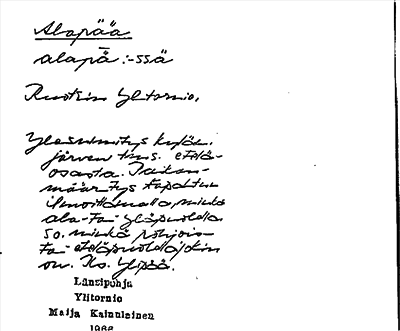 Alapää
alapǟ :-ssä
Ruotsin Ylitornio.
Yleisnimitys kylän,
järven tms. etelä-
osasta. Paikan-
määritys tapahtuu
ilmoittamalla, minkä
ala- ta- yläpuolella
so. minkä pohjois-
ta- eteläpuolella jokin
on. Ks. Yläpää.
Länsipohja
Ylitornio
Maija Kainulainen
1966